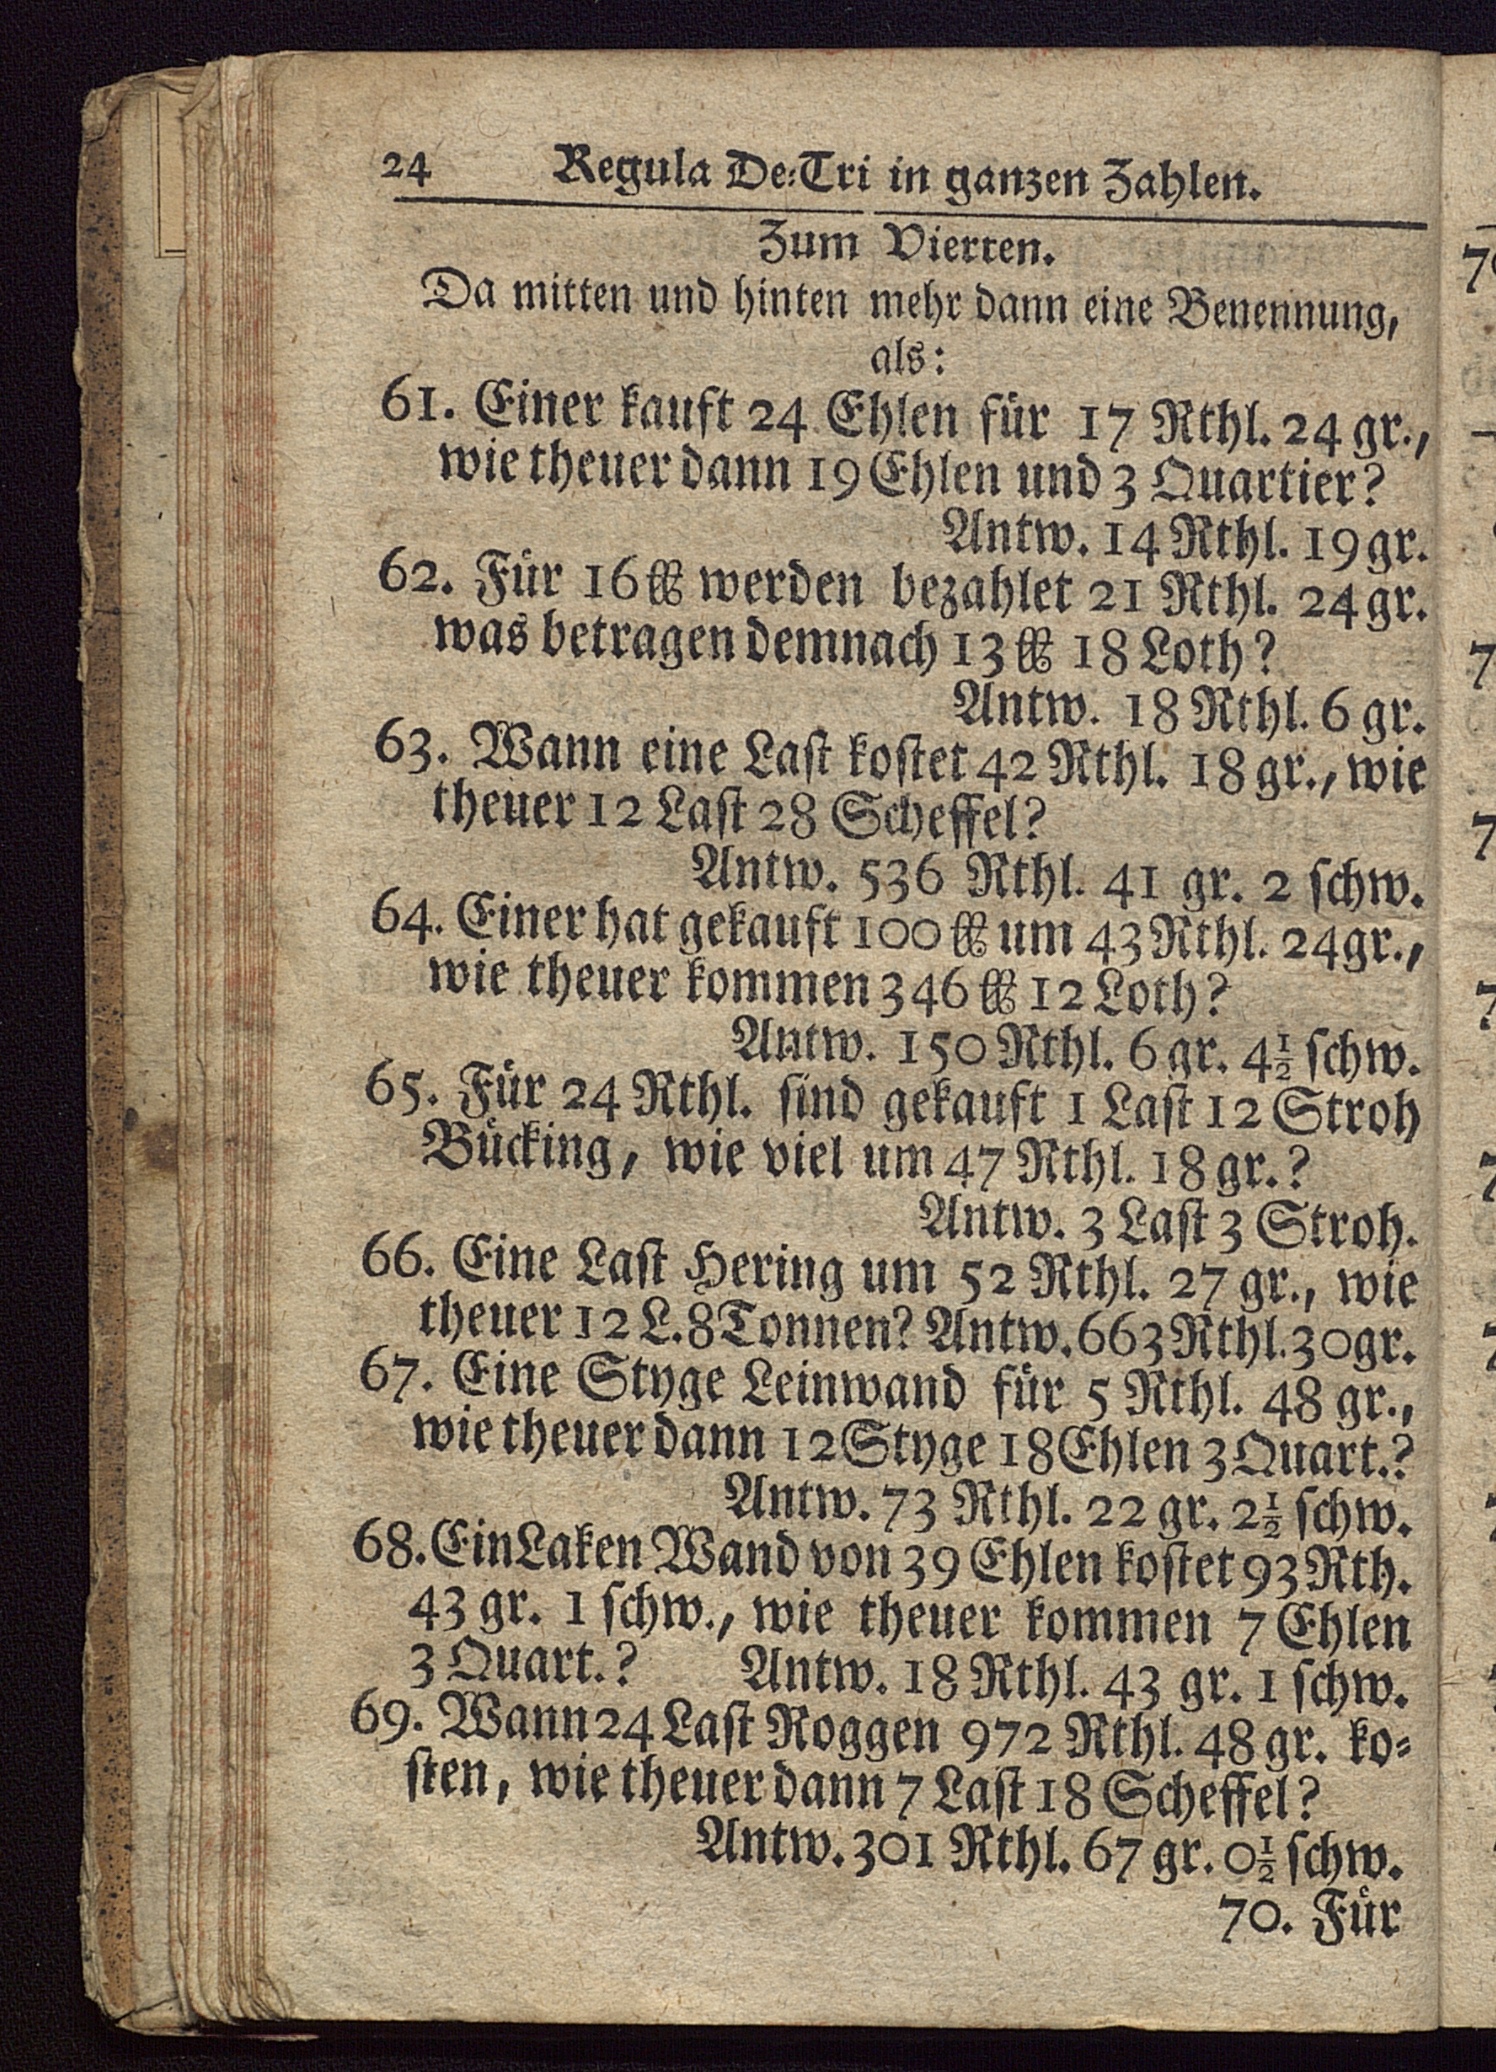 24 Regula De-Tri in ganzen Zahlen.
Zum Vierten.
Da mitten und hinten mehr dann eine Benennung,
als:
61. Einer kauft 24 Ehlen für 17 Rthl. 24 gr.,
wie theuer dann 19 Ehlen und 3 Quartier?
Antw. 14 Rthl. 19 gr.
62. Für 16 ℔ werden bezahlet 21 Rthl. 24 gr.
was betragen demnach 13 ℔ 18 Loth?
Antw. 18 Rthl. 6 gr.
63. Wann eine Last kostet 42 Rthl. 18 gr., wie
theuer 12 Last 28 Scheffel?
Antw. 536 Rthl. 41 gr. 2 schw.
64. Einer hat gekauft 100 ℔ um 43 Rthl. 24 gr.,
wie theuer kommen 346 ℔ 12 Loth?
Antw. 150 Rthl. 6 gr. 4½ schw.
65. Für 24 Rthl. sind gekauft 1 Last 12 Stroh
Bücking, wie viel um 47 Rthl. 18 gr.?
Antw. 3 Last 3 Stroh.
66. Eine Last Hering um 52 Rthl. 27 gr., wie
theuer 12 L. 8 Tonnen? Antw. 663 Rthl. 30 gr.
67. Eine Styge Leinwand für 5 Rthl. 48 gr.,
wie theuer dann 12 Styge 18 Ehlen 3 Quart.?
Antw. 73 Rthl. 22 gr. 2½ schw.
68. Ein Laken Wand von 39 Ehlen kostet 93 Rth.
43 gr. 1 schw., wie theuer kommen 7 Ehlen
3 Quart.? Antw. 18 Rthl. 43 gr. 1 schw.
69. Wann 24 Last Roggen 972 Rthl. 48 gr. ko-
sten, wie theuer dann 7 Last 18 Scheffel?
Antw. 301 Rthl. 67 gr. 0½ schw.
70. Für